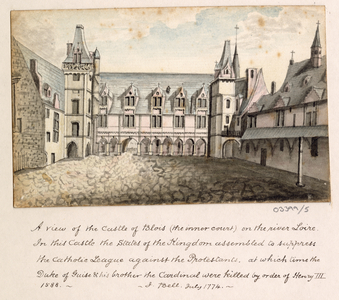 A view of the Castle of Blois (the inner court) on the river Loire.
In this Castle the States of the Kingdom assembled to suppress
the Catholic League against the Protestants, at which time the
Duke of Guise & his brother the Cardinal were killed by order of Henry III.
1588. ~ July 1774. ~